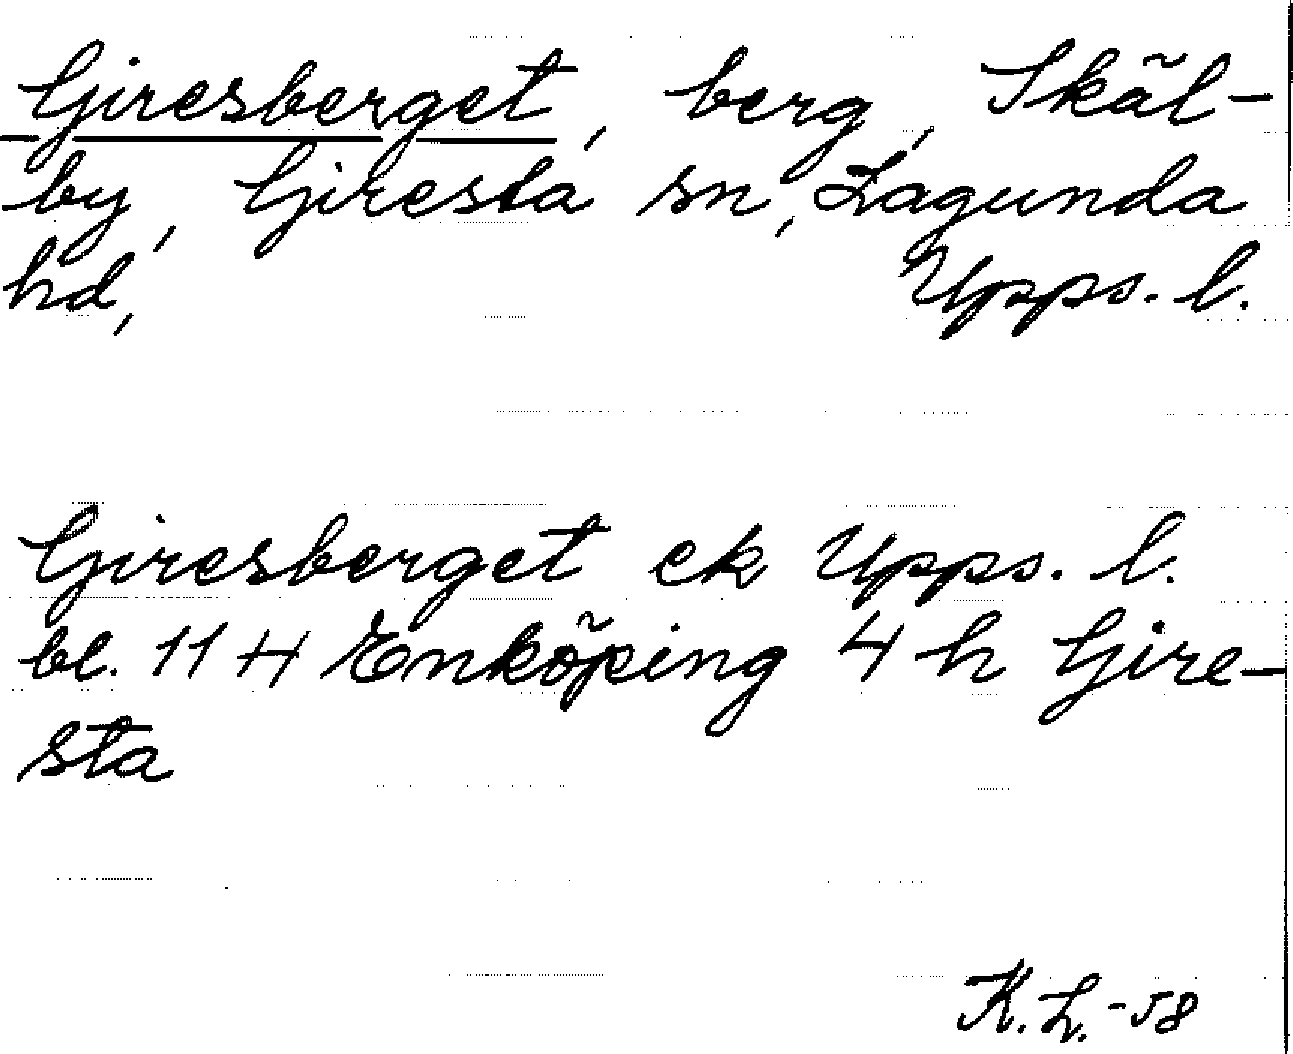 Giresberget, berg, Skäl-
by, Giresta sn, Lagunda
hd, Upps. l.
Giresberget ek Upps. l.
bl. 11 H Enköping 4 h Gire-
sta
K. L. -58